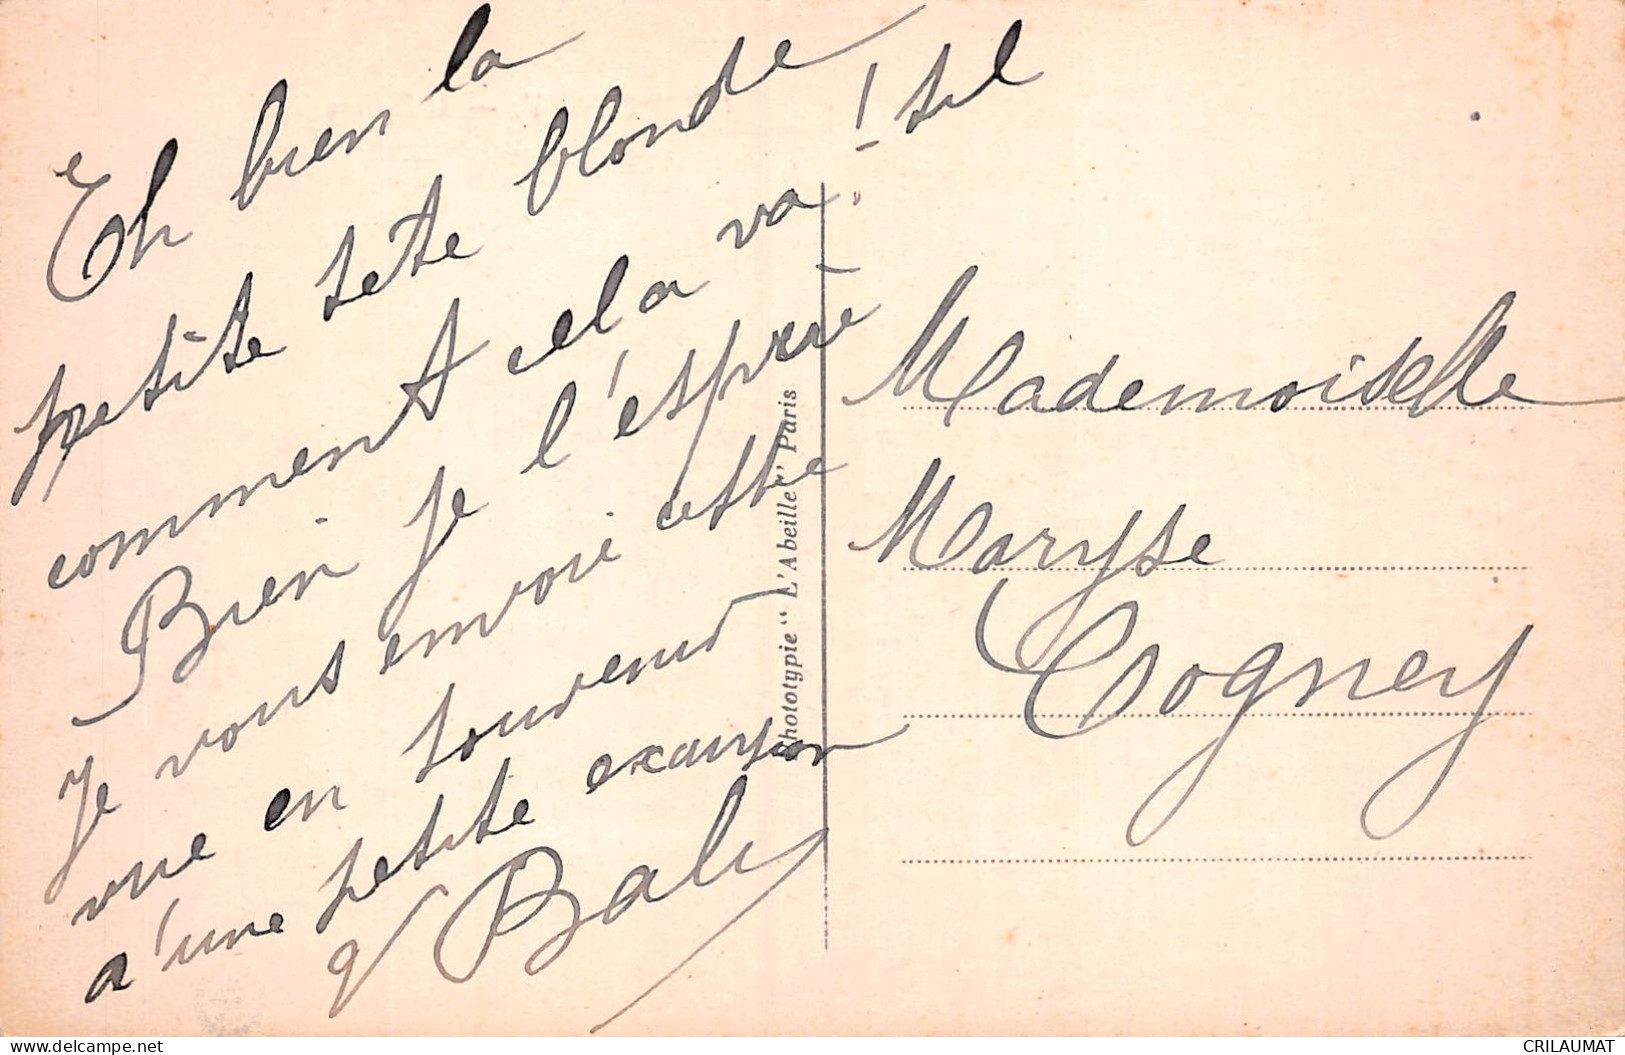 Eh bien la
petite tête blonde
comment cela va ! til
Bien je l'espère
Je vous envoie cette
vue en souvenir
d'une petite excursion
Baly
Phototypie "L'Abeille" Paris
Mademoiselle
Maryse
Cogney
CRILAUMAT